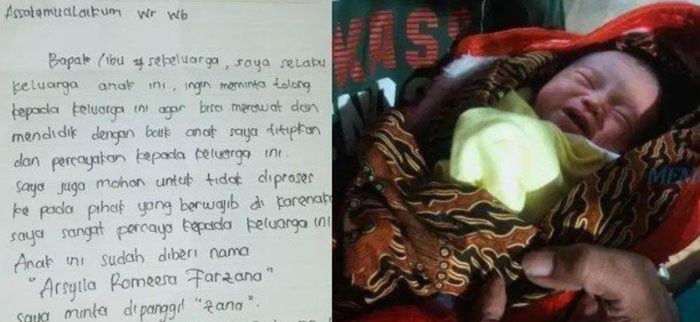 Assalamualaikum Wr Wb
Bapak / ibu # sekeluarga, saya selaku
keluarga anak ini, ingin meminta tolong
kepada keluarga ini agar bisa merawat dan
mendidik dengan baik anak saya titipkan
dan percayakan kepada keluarga ini.
Saya juga mohon untuk tidak diproses
ke pada pihak yang berwajib di karenaka
saya sangat percaya kepada keluarga ini
Anak ini sudah diberi nama
"Arsyila Romeesa Farzana"
saya minta dipanggil "zana".
KASE
MEM